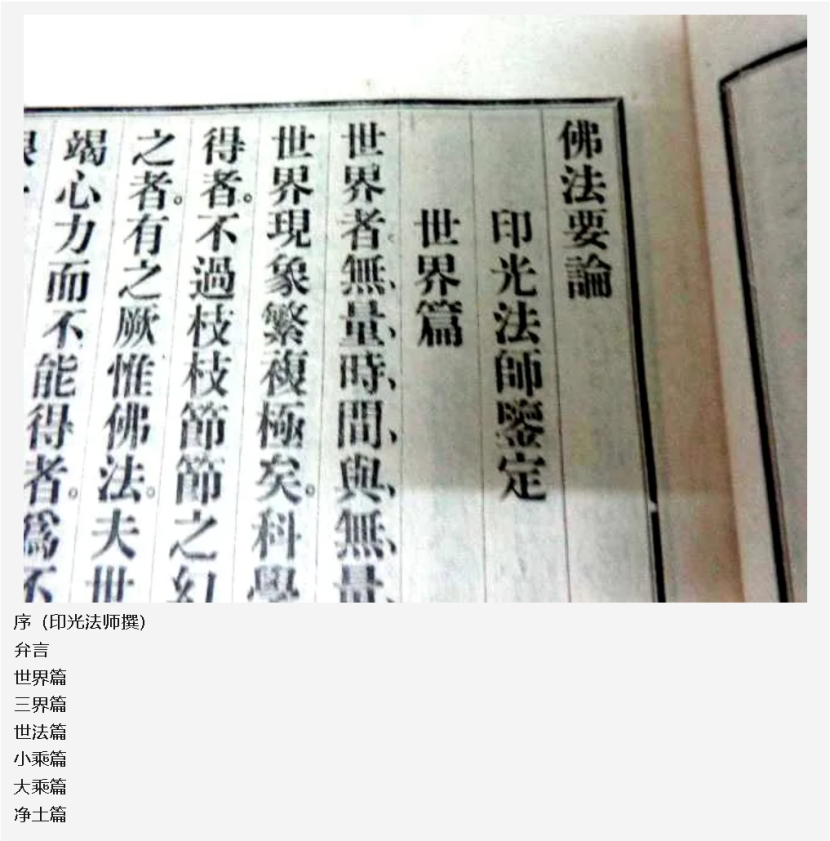 佛法要論
印光法師鑒定
世界篇
世界者無、量、時、間、與、無、量、
世界現象繁複極矣。科學
得者。不過枝枝節節之幻
之者。有之厥惟佛法。夫世
竭心力而不能得者。爲不
序（印光法师撰）
弁言
世界篇
三界篇
世法篇
小乘篇
大乘篇
净土篇